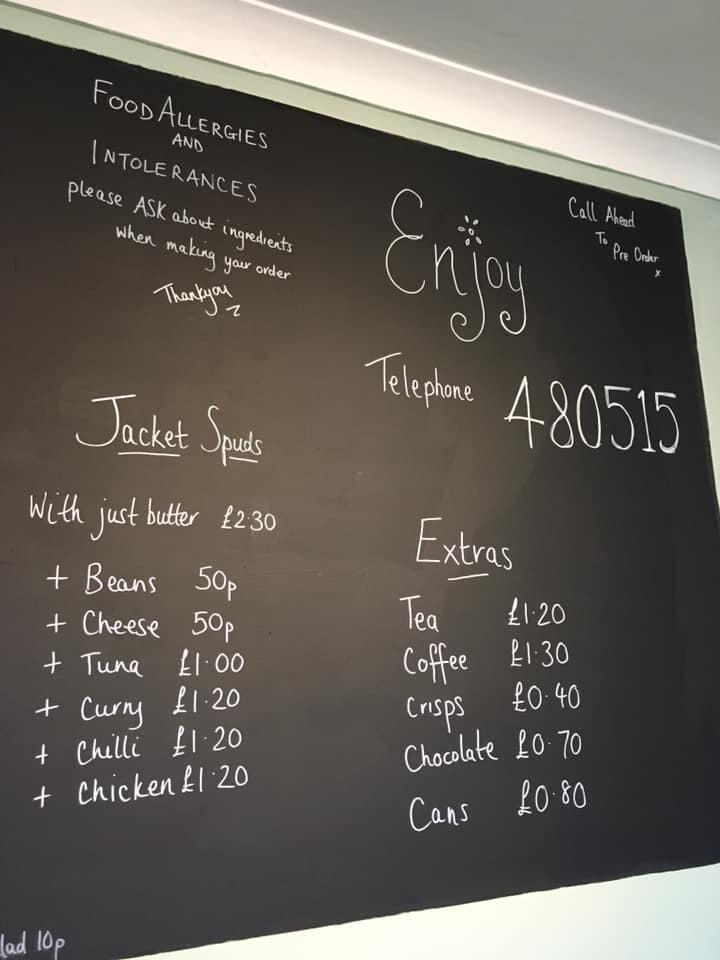 FOOD ALLERGIES
AND
INTOLERANCES
please ASK about ingredients
when making your order
Thankyou
Enjoy
Call Ahead
To
Pre Order
x
Telephone 480515
Jacket Spuds
With just butter £2·30
+ Beans 50p
+ Cheese 50p
+ Tuna £1·00
+ Curry £1·20
+ Chilli £1·20
+ Chicken £1·20
Extras
Tea £1·20
Coffee £1·30
Crisps £0·40
Chocolate £0·70
Cans £0·80
lad 10p